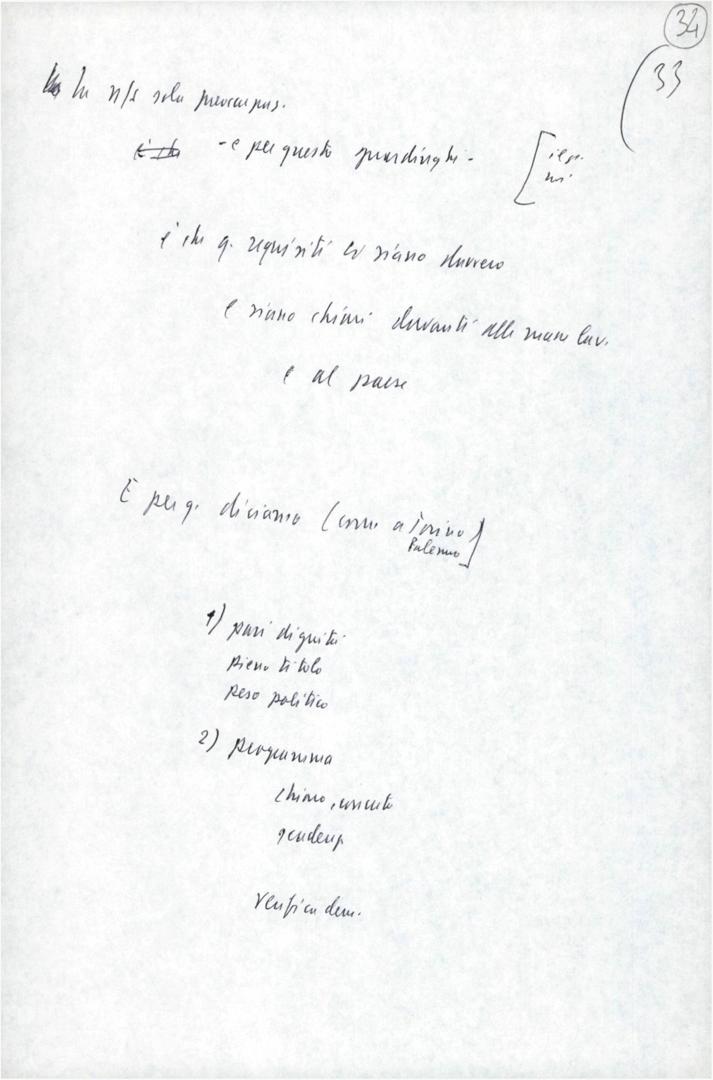 34
33
la n/s sola preoccupaz.
- e per questo guardinghi -
è che q. requisiti ci siano davvero
e siano chiari davanti alle masse lav.
e al paese
E per q. diciamo (come a Torino
Palermo
1) pari dignità
pieno titolo
peso politico
2) programma
chiaro, concreto
scadenz
verifica dem.